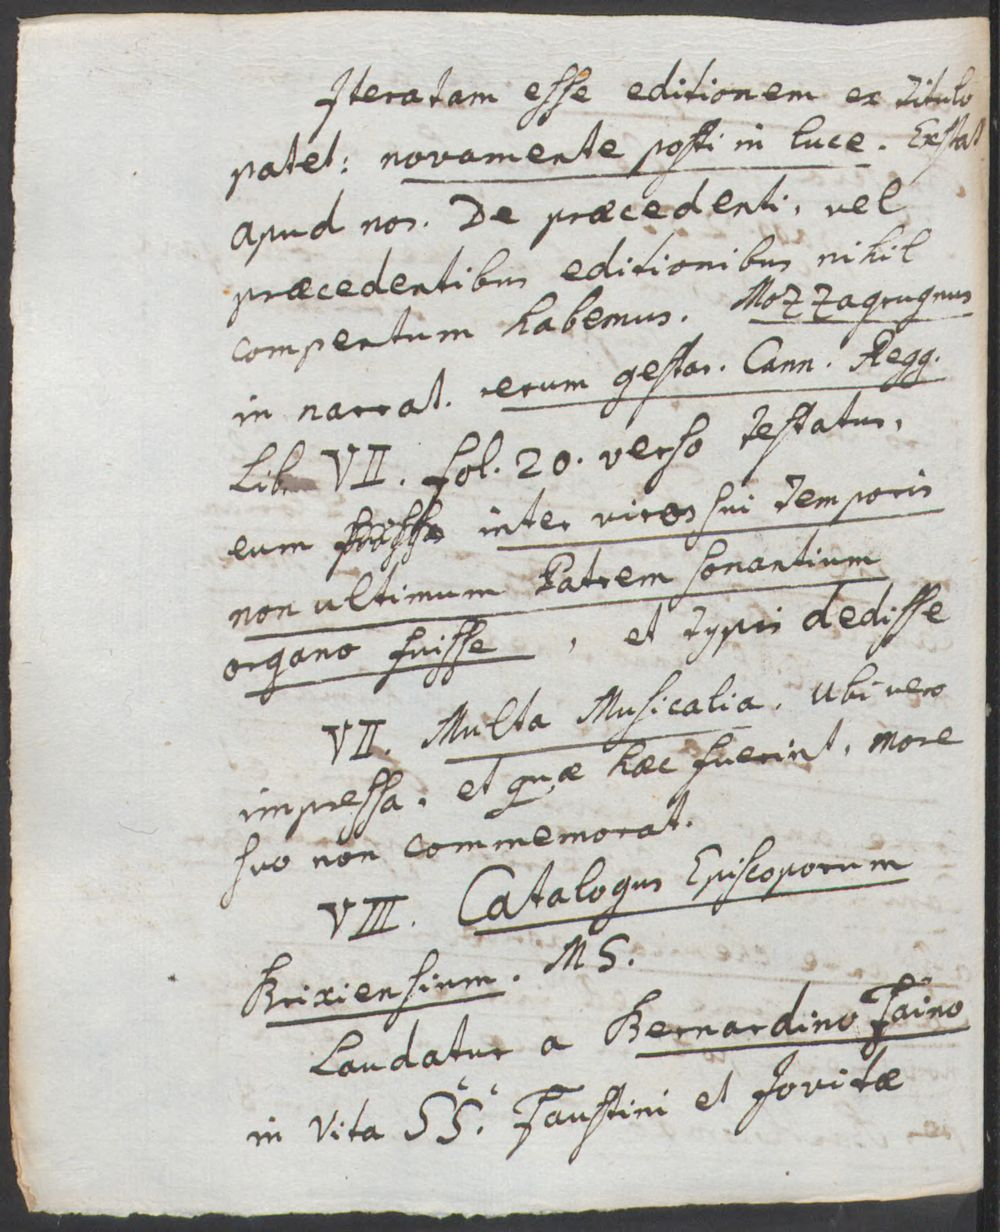 Iteratam esse editionem ex titulo
patet: novamente posti in luce. Exstat
apud nos. De præcedenti, vel
præcedentibus editionibus nihil
compertum habemus. Mozzagrugnus
in narrat. rerum gestar. Cann. Regg.
Lib. VII. fol. 20. verso testatur,
eum inter viros sui temporis
non ultimum Patrem sonantium
organo fuisse, et typis dedisse
VII. Multa Musicalia. Ubi vero
impressa, et quæ hæc fuerint, more
suo non commemorat.
VIII. Catalogus Episcoporum
Brixiensium. MS.
Laudatur a Bernardino Faino
in Vita SS. Faustini et Jovitæ